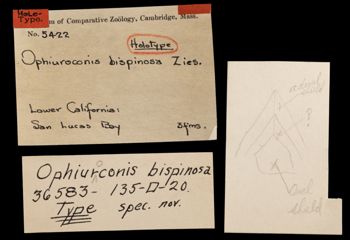 Holo-
Type.
m of Comparative Zoölogy, Cambridge, Mass.
No. 5422
Holotype
Ophiuroconis bispinosa Zies.
Lower California:
San Lucas Bay
3 fms.
Ophiurconis bispinosa
36583- 135-D-20.
Type spec. nov.
radial
shield
?
oral
shield